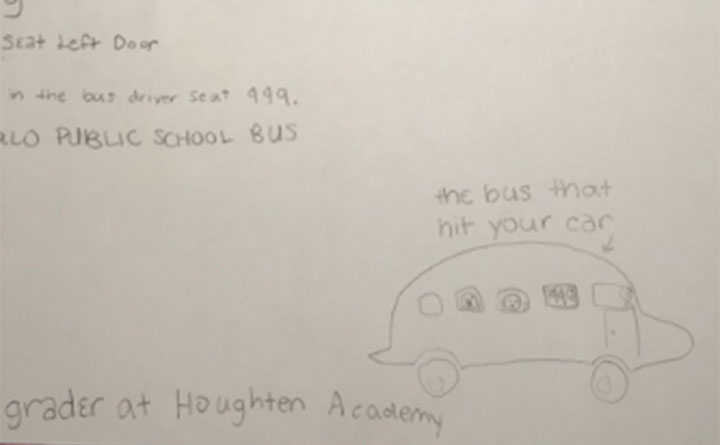 g
Seat Left Door
in the bus driver seat 449.
ALO PUBLIC SCHOOL BUS
the bus that
hit your car
449
grader at Houghten Academy